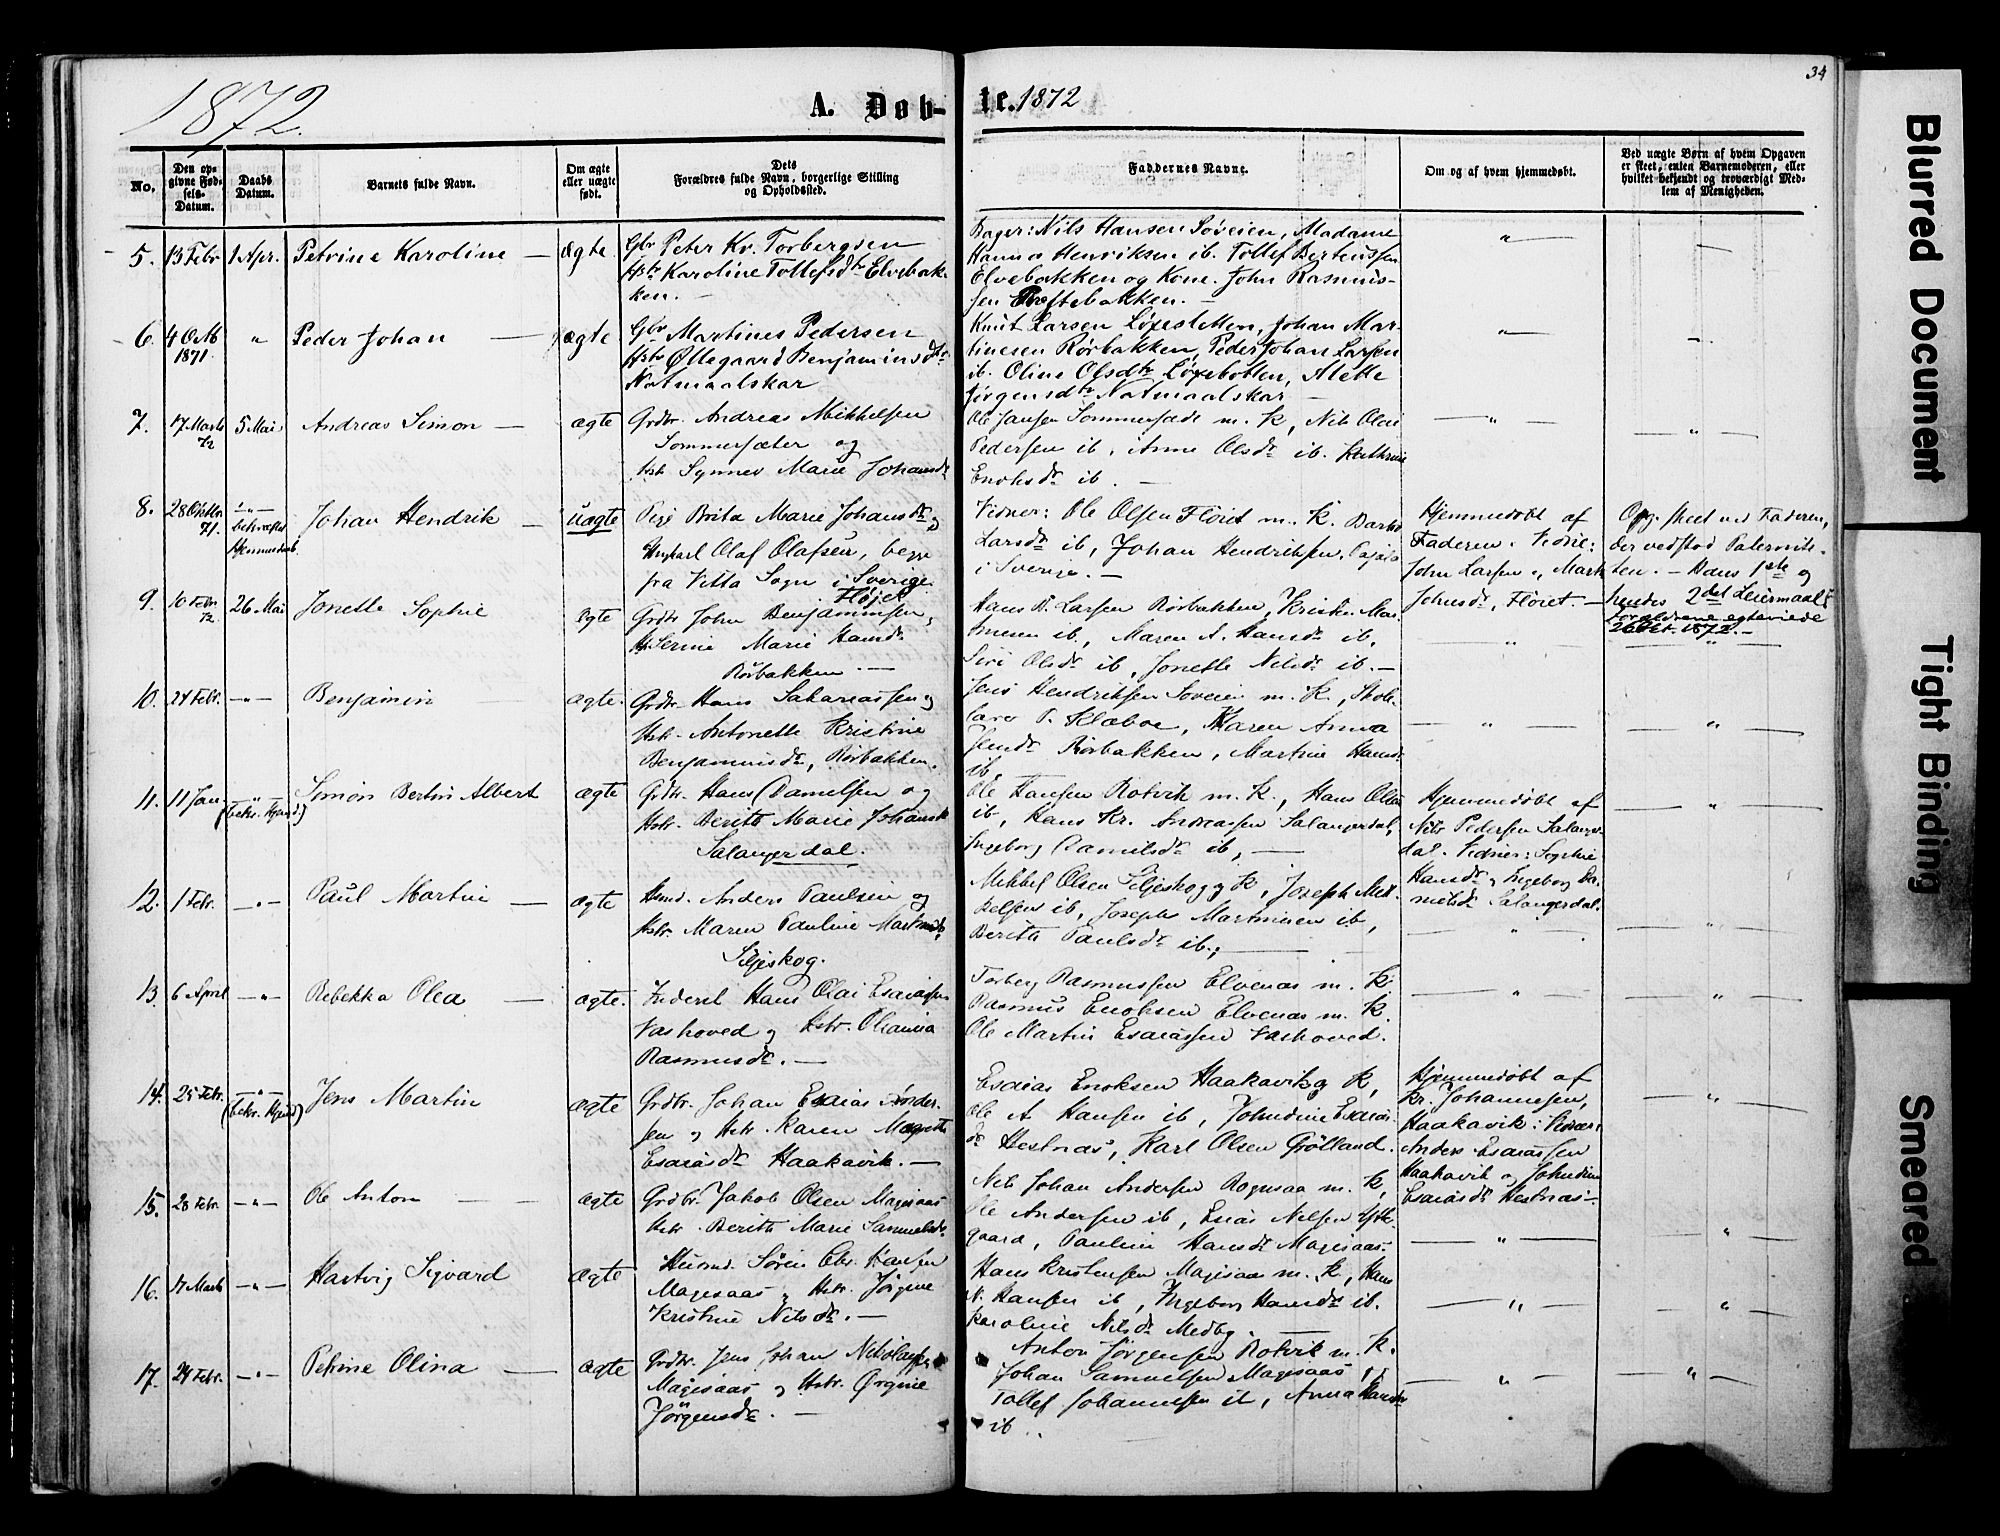 34
1872.
A. Døb-
te. 1872
No.
Den op-
givne Fød-
sels-
Datum.
Daabs
Datum.
Barnets fulde Navn.
Om ægte
eller uægte
født.
Dets
Forældres fulde Navn, borgerlige Stilling
og Opholdssted.
Faddernes Navne.
Om og af hvem hjemmedøbt.
Ved uægte Børn af hvem Opgaven
er skeet, enten Barnemoderen, eller
hvilket bekjendt og troværdigt Med-
lem af Menigheden.
5. 13 Febr 1 Apr. Petrine Karoline — Ægte
Gbr Peter Kr. Torbergsen
Hstr Karoline Tollefsdtr Elvebak-
ken. —
Bager: Nils Hansen Søveien, Madame
Hanna Henriksen ib. Tollef Bertheussen
Elvebakken og Kone. John Rasmus-
sen Toftebakken. —
" —
6. 4 Octb 1871. " Peder Johan — ægte
Gbr Martines Pedersen
Hstr Ollegaard Benjaminsdtr
Notmaalskar
Knut Larsen Løxesletten, Johan Mar-
tinesen Rørbakken, Peder Johan Larsen
ib. Oline Olsdtr Løxebotten, Alette
Jørgensdtr Notmaalskar —
" —
7. 17 Marts 72 5 Mai Andreas Simon — ægte
Grdbr. Andreas Mikkelsen
Sommersæter og
Hstr. Synnev Marie Johansdr
Ole Jansen Sommersæde m. K, Nils Olai
Pedersen ib, Anne Olsdr ib. Kathrine
Enoksdr ib. —
— " — — " —
8. 28 Oktbr 71. — " — bekræftet Hjemmedaab. Johan Hendrik — uægte
Pige Brita Marie Johansdr og
Ungkarl Olaf Olafsen, begge
fra Vitta Sogn i Sverige.
Fløjet
Vidner: Ole Olsen Fløiet m. K.
Larsdr ib, Johan Hendriksen,
i Sverige. —
Hjemmedøbt af
Faderen. Vidne:
John Larsen og
Johnsdr, Fløiet. —
Opg. skeet ved Faderen,
der vedstod Paternite-
ten. — Hans 1ste og
hendes 2det Leiermaal.
Forældrene egteviede
26 Oct. 1872. —
9. 10 Febr 72 26 Mai Jonette Sophie ægte
Grdbr John Benjaminsen,
H. Serine Marie Hansdr
Rørbakken —
Hans B. Larsen Rørbakken, Kristen Mar-
tinesen ib, Maren A. Hansdr ib,
Siri Olsdr ib, Jonette Nilsdr ib. —
— " — — " —
10. 24 Febr. — " — Benjamin — ægte.
Grdbr. Hans Sakariassen og
Hstr. Antonette Kristine
Benjaminsdr, Rørbakken.
Jens Hendriksen Soveien m. K, Skole-
lærer P. Klæboe, Maren Anna
Jensdr Rørbakken, Martine Hansdr
ib.
— " — — " —
11. 11 Jan — " — (bekr. Hjmd.) Simon Bertin Albert ægte
Grdbr. Hans Danielsen og
Hstr. Berith Marie Johansdr
Salangerdal.
Ole Hansen Rotvik m. K., Hans Olsen
ib, Hans Kr. Andreassen Salangerdal,
Ingeborg Danielsdr ib, —
Hjemmedøbt af
Nils Pedersen Salanger-
dal. Vidner: Sophie
Hansdr og Ingeborg Da-
nielsdr Salangerdal.
— " —
12. 1 Febr. — " — Paul Martin — ægte
Husmd. Anders Paulsen og
Hstr. Maren Pauline Martinsdr
Siljeskog.
Mikkel Olsen Siljeskog og K, Joseph Mik-
kelsen ib, Joseph Martinsen ib,
Berith Paulsdr ib., —
— " — — " —
13 6 April — " — Rebekka Olea — ægte.
Inderst Hans Olai Esaiassen
Vashoved og Hstr. Olianna
Rasmusdr. —
Torberg Rasmussen Elvenæs m. K.
Rasmus Enoksen Elvenæs m. K.
Ole Martin Esaiassen Vashoved.
— " — — " —
14. 25 Febr. — " — (bekr. Hjmd) Jens Martin ægte
Grdbr. Johan Esaias Ander-
sen og Hstr. Karen Magrete
Esaiasdr Haakavik. —
Esaias Enoksen Haakavik og K,
Ole A Hansen ib, Johndine Esaias-
dr Hestnæs, Karl Olsen Grølland.
Hjemmedøbt af
Kr. Johannesen,
Haakavik: Vidner:
Anders Esaiassen
Haakavik og Johndine
Esaiasdr Hestnæs —
— " —
15. 28 Febr. — " — Ole Anton — ægte
Grdbr. Jakob Olsen Magesaas
Hstr. Berith Marie Samuelsdr.
Nils Johan Andersen Rognsaa m. K,
Ole Andersen ib, Esaias Nilsen
gaard, Pauline Hansdr Magesaas.
— " — — " —
16. 17 Marts — " — Hartvig Sigvard ægte
Husmd. Søren Chr. Hansen
Magesaas og Hstr. Jørgine
Kristine Nilsdr. —
Hans Kristensen Magesaas m. K, Hans
N. Hansen ib, Ingeborg Hansdr ib.
Karoline Nilsdr Medby. —
— " — — " —
17. 24 Febr. — " — Petrine Olina — ægte
Grdbr. Jens Johan Nikolaisen
Magesaas og Hstr. Ørgine
Jørgensdr. —
Anton Jørgensen Rotvik m. K.
Johan Samuelsen Magesaas,
Tollef Johannesen ib, Anna Hansdr
ib..
— " — — " —
Blurred Document
Tight Binding
Smeared